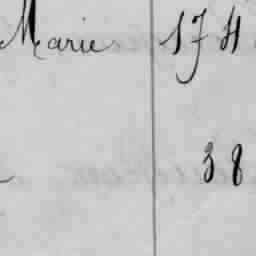 Marie 17 H
38